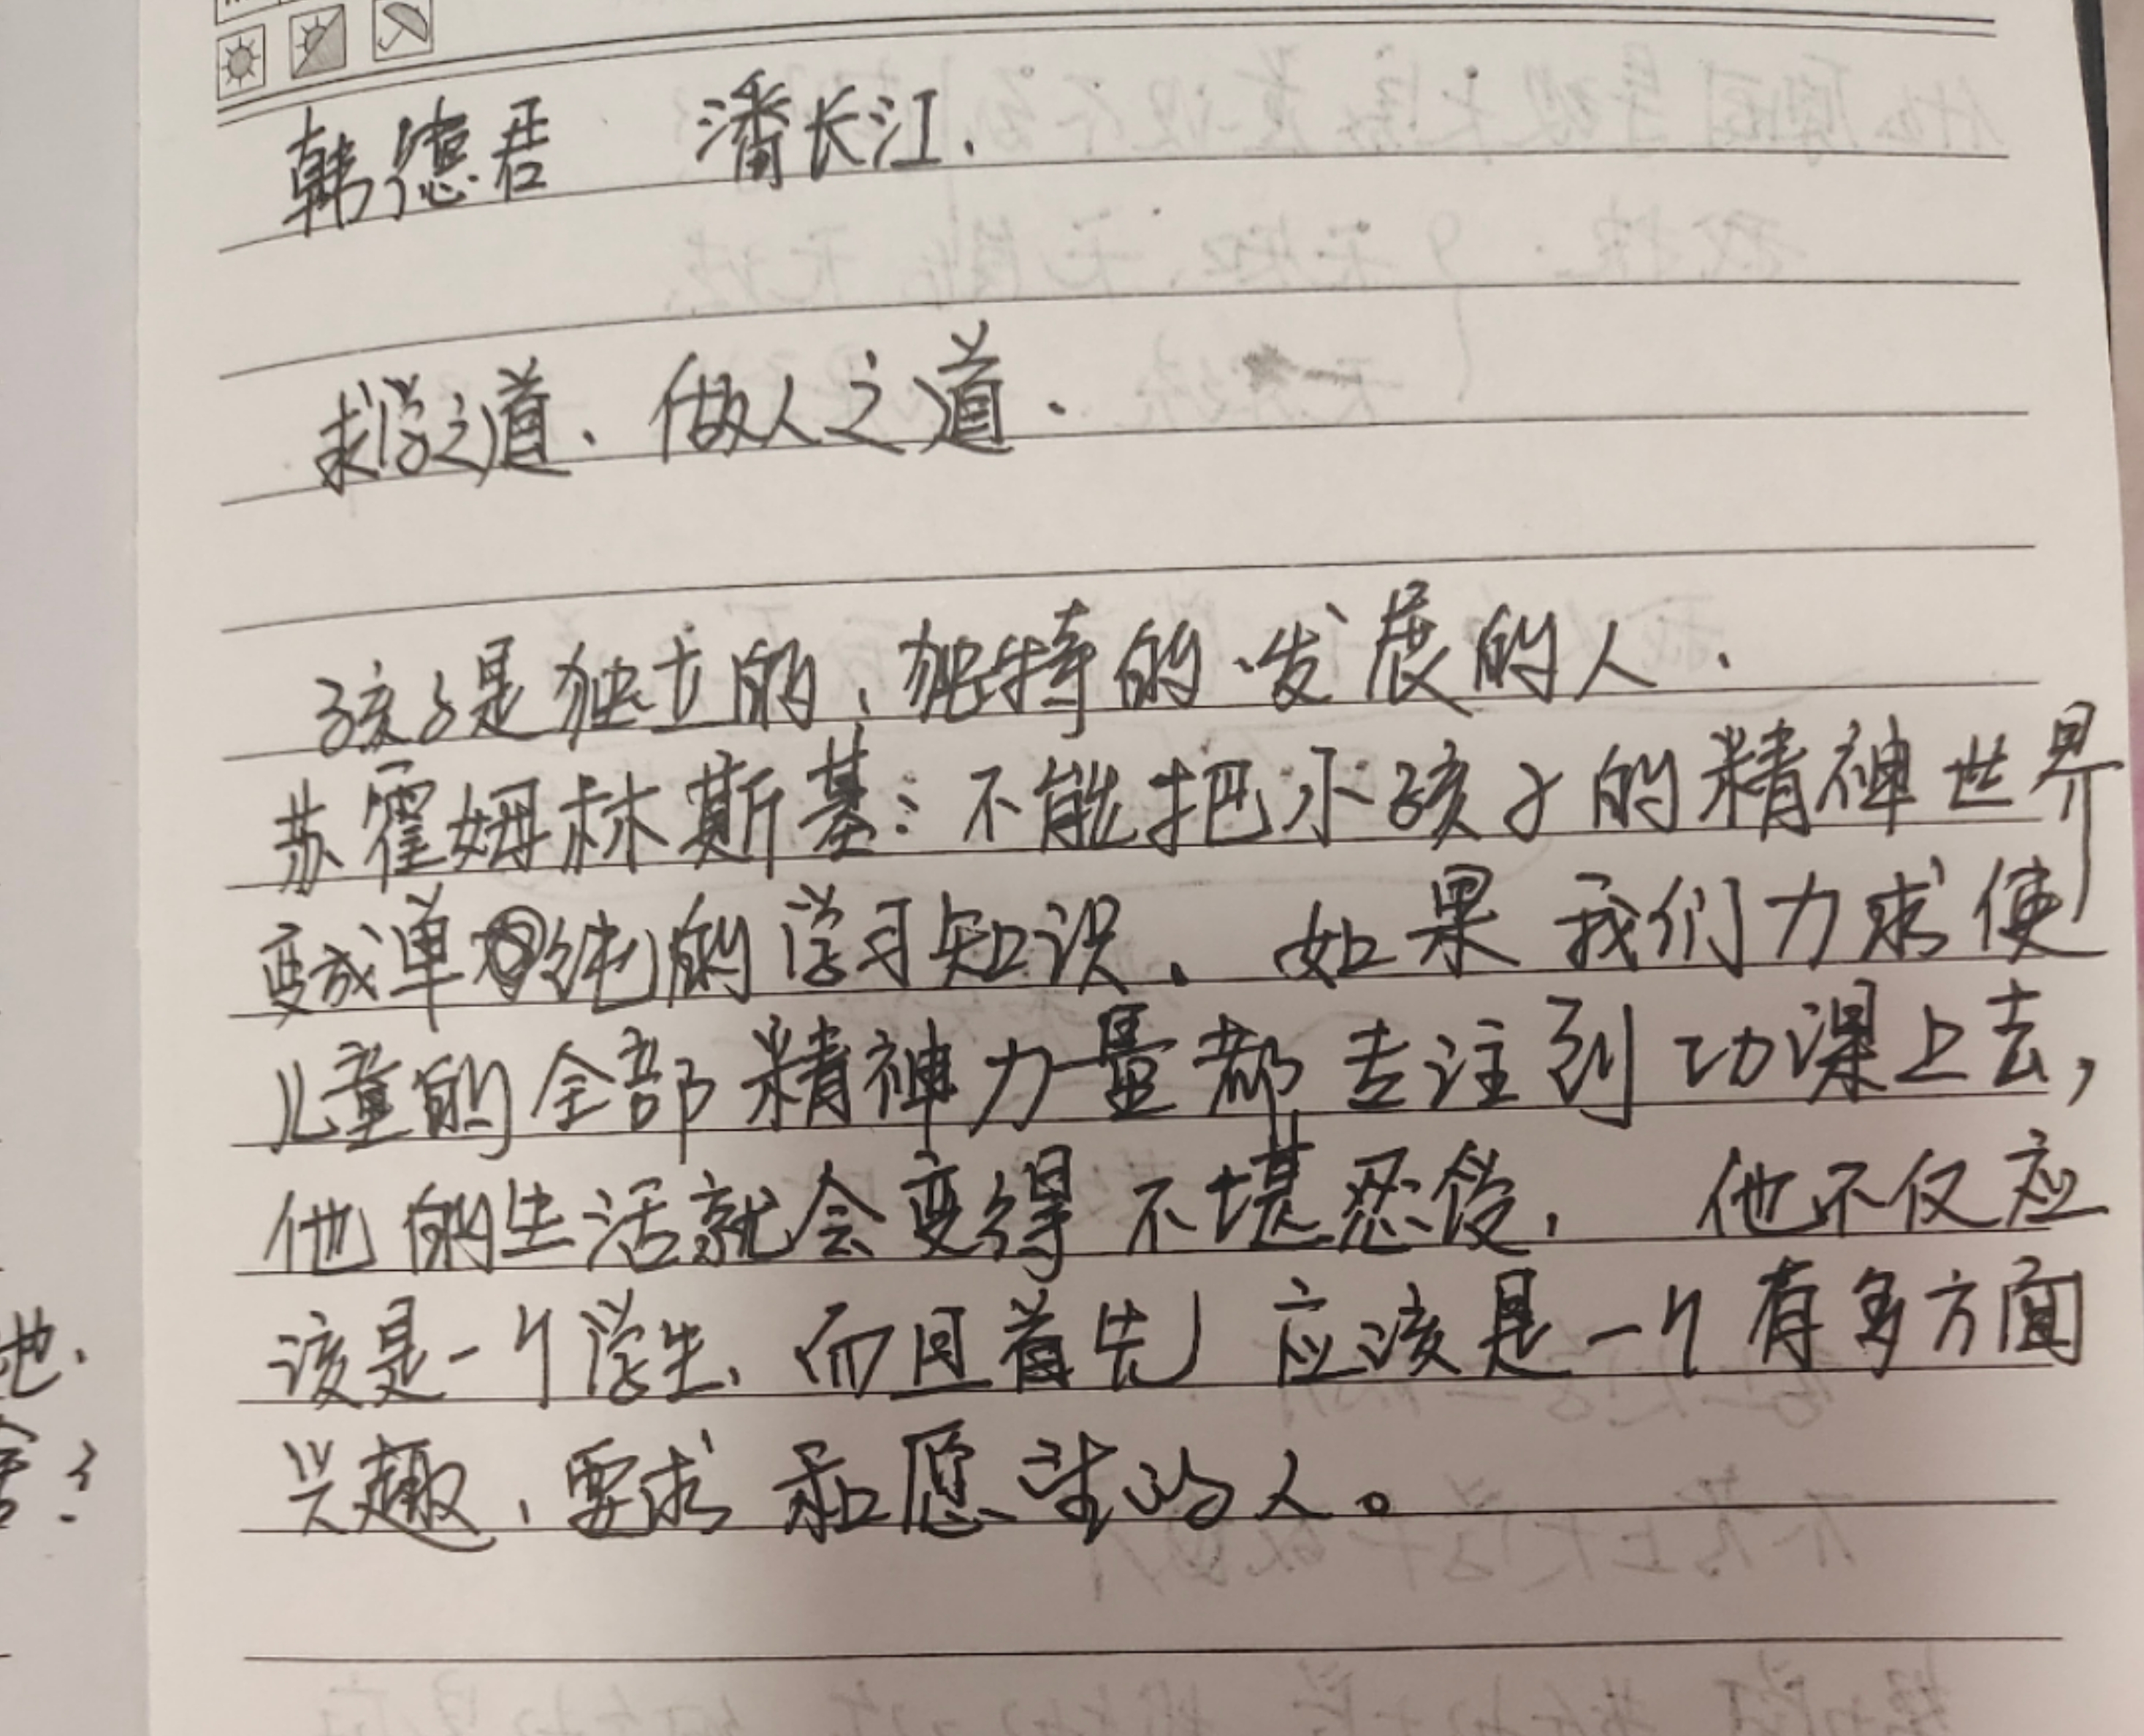 韩德君 潘长江.
求学之道、做人之道.
孩子是独立的、独特的、发展的人.
苏霍姆林斯基：不能把小孩子的精神世界
变成单纯的学习知识、如果我们力求使
儿童的全部精神力量都专注到功课上去,
他的生活就会变得不堪忍受, 他不仅应
该是一个学生、而且首先应该是一个有多方面
兴趣、要求和愿望的人。